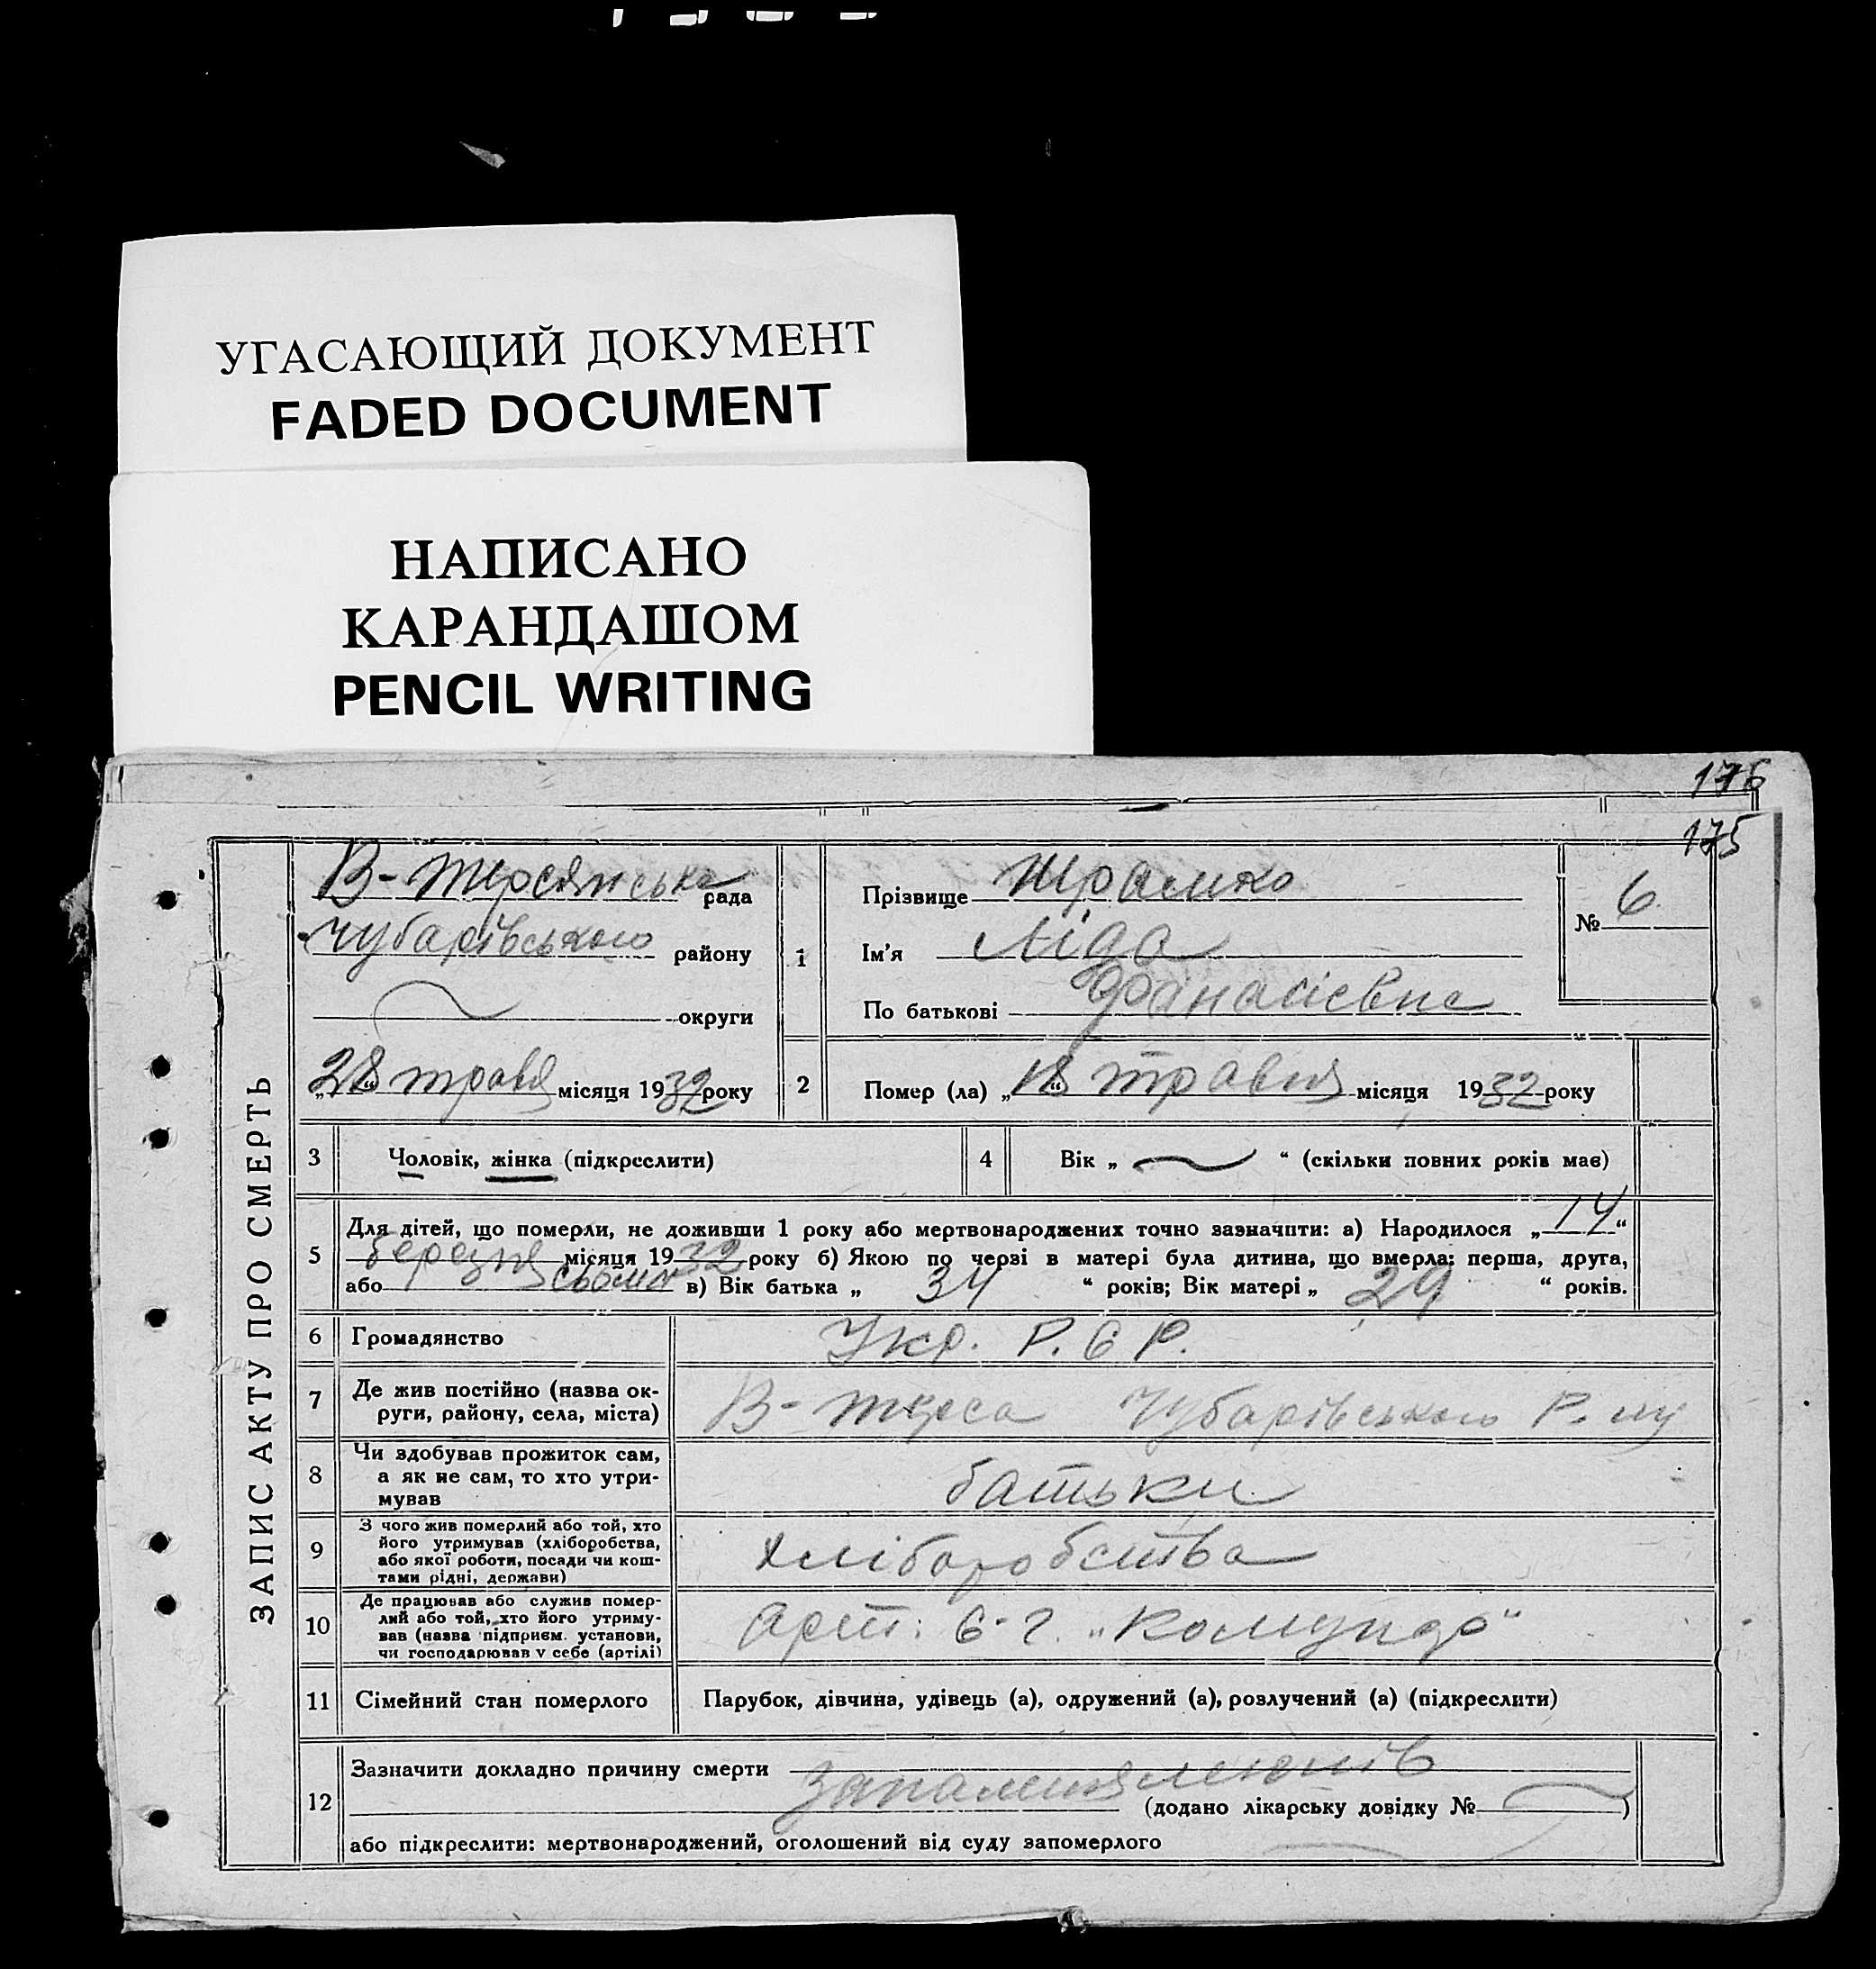 УГАСАЮЩИЙ ДОКУМЕНТ
FADED DOCUMENT
НАПИСАНО
КАРАНДАШОМ
PENCIL WRITING
176
175
ЗАПИС АКТУ ПРО СМЕРТЬ
В-Терсянська рада
Чубарівського району
округи
„28“ травня місяця 1932 року
1
Прізвище
Ім'я Ліда
По батькові Афанасієвна
№ 6
2 Помер (ла) „18“ травня місяця 1932 року
3 Чоловік, жінка (підкреслити)
4 Вік „ “ (скільки повних років має)
5 Для дітей, що померли, не доживши 1 року або мертвонароджених точно зазначити: а) Народилося „14“
березня місяця 1932 року б) Якою по черзі в матері була дитина, що вмерла: перша, друга,
або сьома в) Вік батька „34“ років; Вік матері „29“ років.
6 Громадянство Укр. Р.С Р.
7 Де жив постійно (назва округи, району, села, міста) В-Терса Чубарівського Р-ну
8 Чи здобував прожиток сам, а як не сам, то хто утримував батьки
9 З чого жив померлий або той, хто його утримував (хліборобства, або якої роботи, посади чи коштами рідні, держави) хліборобства
10 Де працював або служив померлий або той, хто його утримував (назва підприєм. установи, чи господарював у себе (артілі) Арт: С-г.
11 Сімейний стан померлого Парубок, дівчина, удівець (а), одружений (а), розлучений (а) (підкреслити)
12 Зазначити докладно причину смерти
(додано лікарську довідку № )
або підкреслити: мертвонароджений, оголошений від суду запомерлого